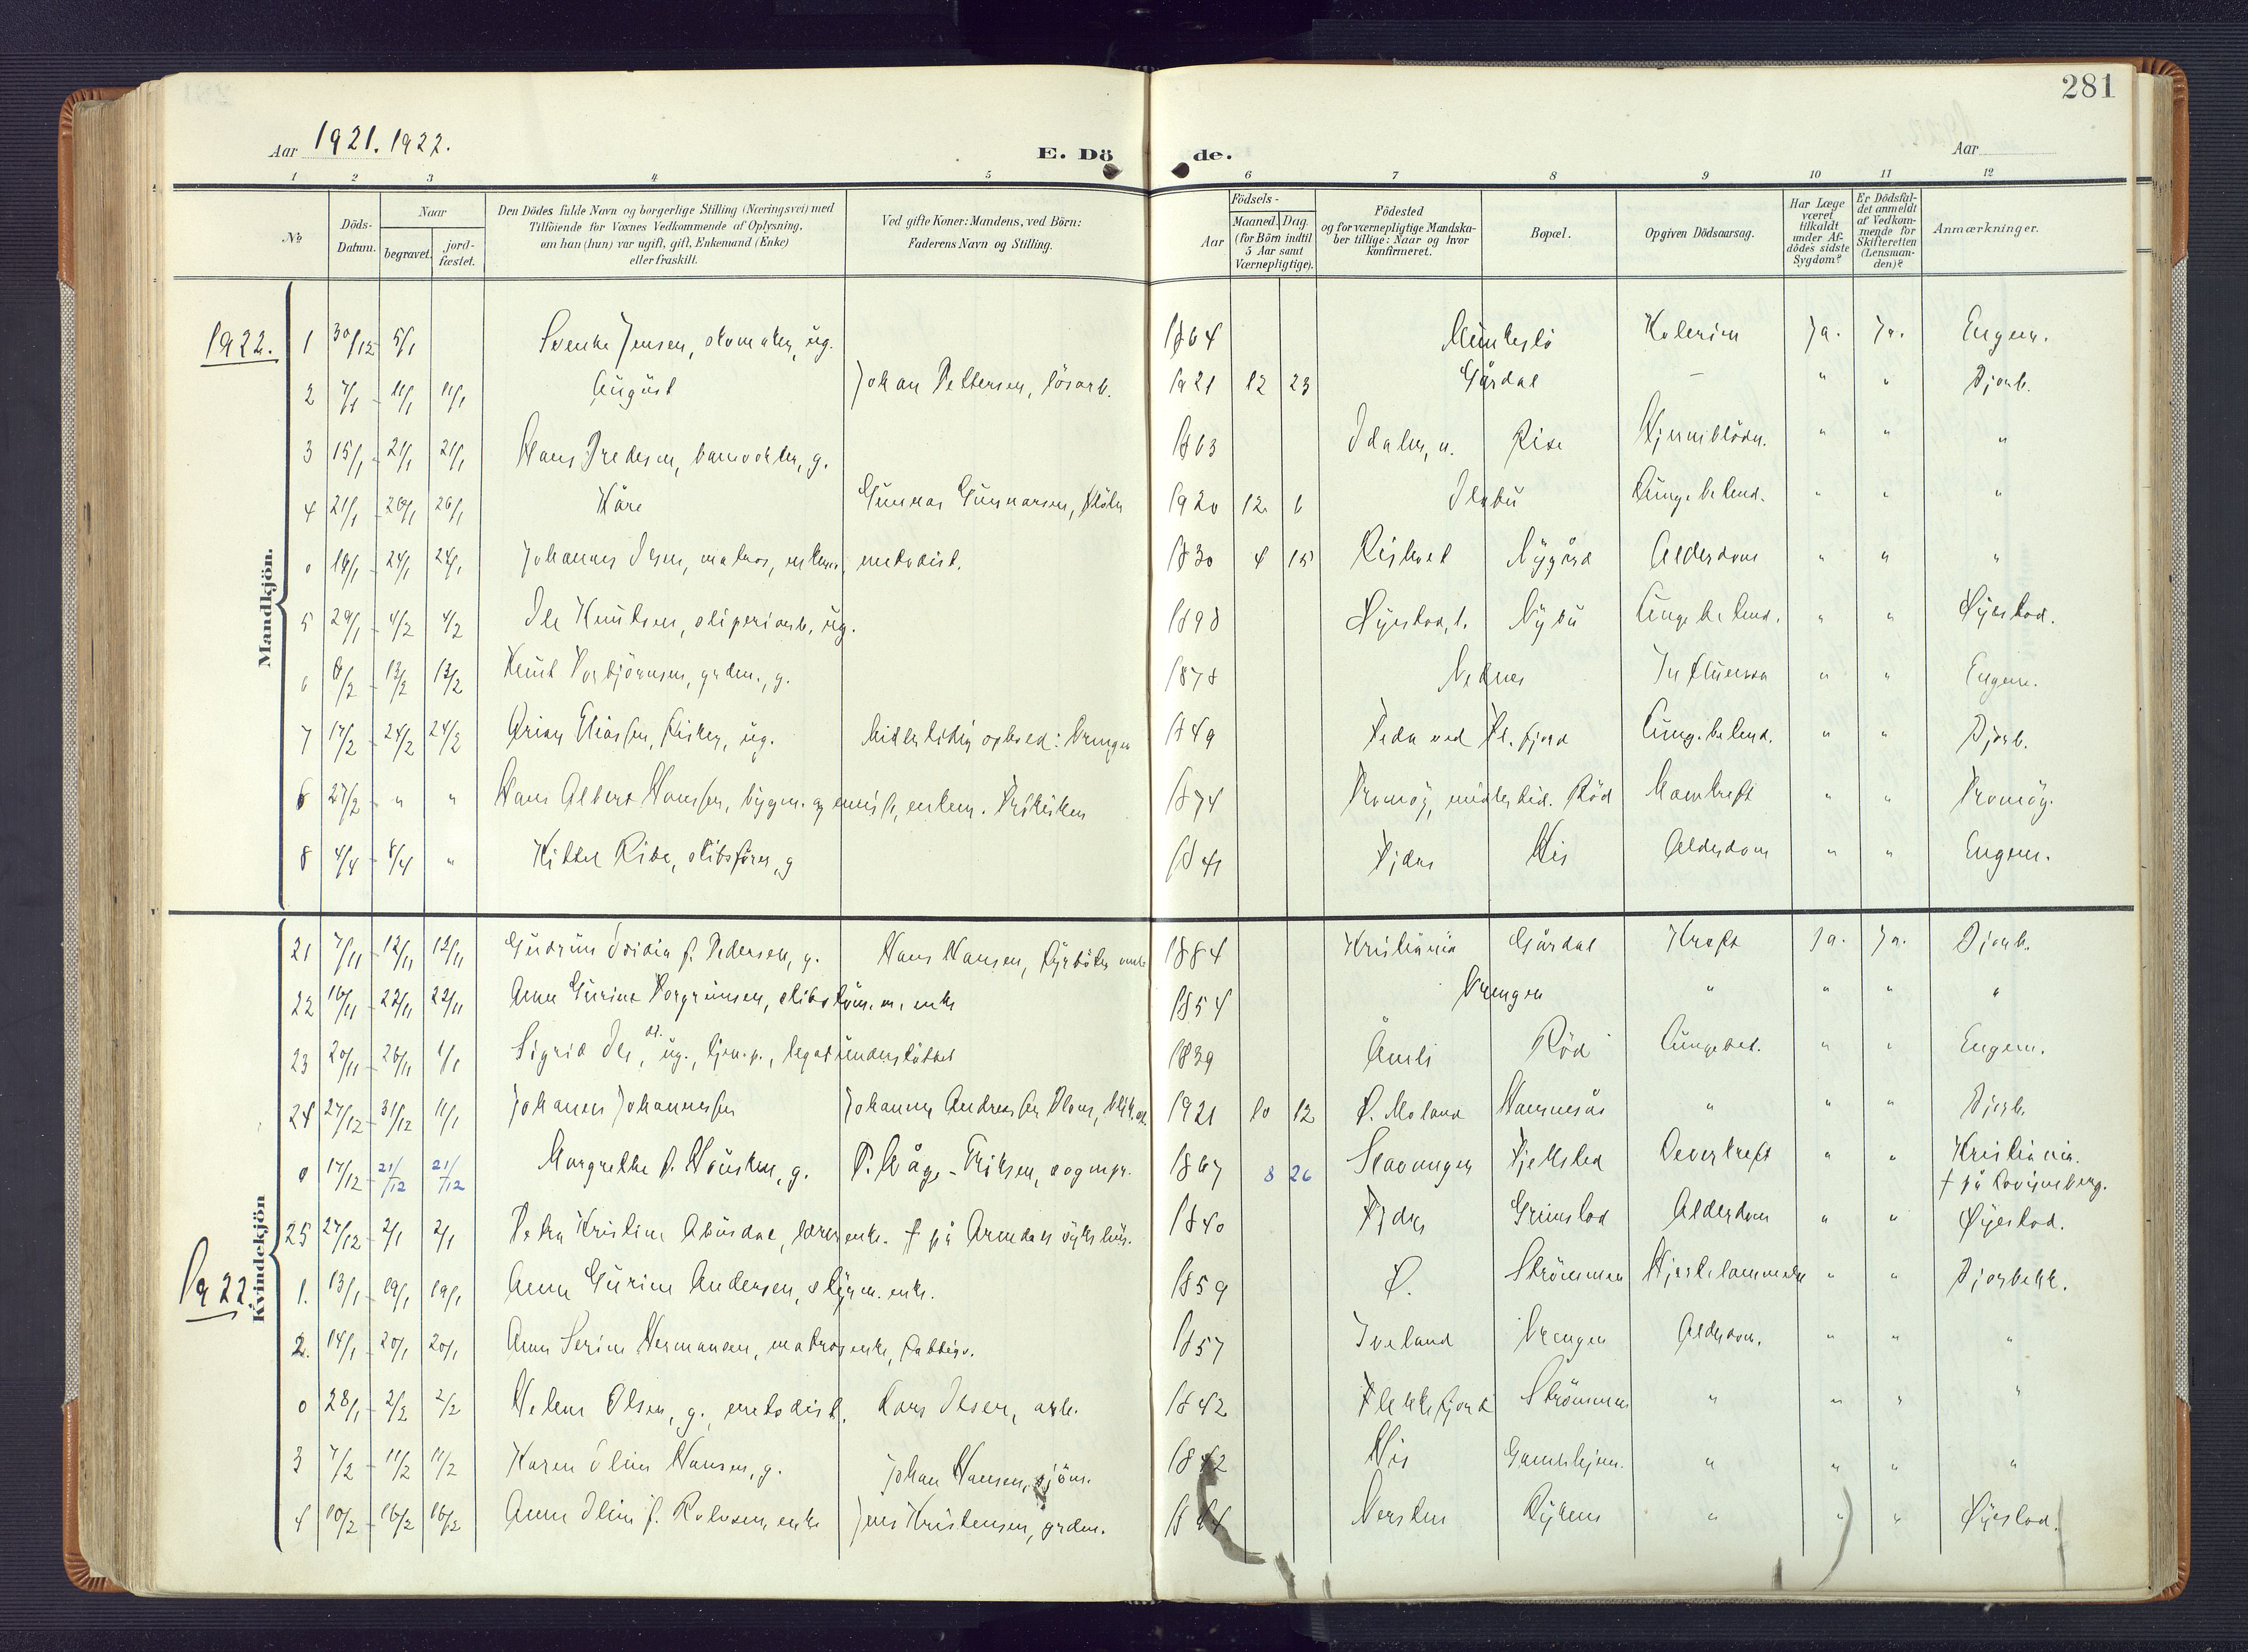 281
Aar 1921. 1922. E. Döde. Aar
1 2 3 4 5 6 7 8 9 10 11 12
No Döds-Datum. Naar begravet. jordfæstet. Den Dödes fulde Navn og borgerlige Stilling (Næringsvei) med Tilföiende for Voxnes Vedkommende af Oplysning, om han (hun) var ugift, gift, Enkemand (Enke) eller fraskilt. Ved gifte Koner: Mandens, ved Börn: Faderens Navn og Stilling. Aar Födsels- Maaned. Dag. (for Börn indtil 5 Aar samt Værnepligtige). Födested og for værnepligtige Mandskaber tillige: Naar og hvor konfirmeret. Bopæl. Opgiven Dödsaarsag. Har Læge været tilkaldt under Afdödes sidste Sygdom? Er Dödsfaldet anmeldt af Vedkommende for Skifteretten (Lensmanden)? Anmærkninger.
Mandkjön.
1922. 1 30/12 5/1 Svenke Jensen, skomaker, ug. 1864 Munkeslö Ja. Ja. Eugen.
2 7/1 11/1 11/1 August Johan Pettersen, lösarb. 1921 12 23 Gårdal – " " Bjorb.
3 15/1 21/1 21/1 Hans Fredesen, g. 1863 Rise Hjerneblödn. " " "
4 21/1 26/1 26/1 Kåre Gunnar Gunnarsen, 1920 12 6 Lungebetend. " " "
0 18/1 24/1 24/1 Johannes Olsen, matros, enkem. metodist. 1830 4 15 Nygård Alderdom " " "
5 29/1 4/2 4/2 Ole Knutsen, sliperiarb., ug. 1898 Öyestad, Nybu Lungebetend. " " Öyestad.
6 8/2 13/2 13/2 Knut Torbjörnsen, grdm., g. 1878 Nednes Influensa " " Eugen.
7 17/2 24/2 24/2 Eliassen, fisker, ug. Midlertidig ophold: Vrengen 1849 Feda ved Fl.fjord Lung.betend. " " Bjorb.
6 27/2 " " Hans Albert Hanssen, bygm. og enkem. 1874 Tromöy, midlertid. Röd Mavekreft " " Tromöy.
8 4/4 8/4 " Kittel Ribe, skibsförer, g 1841 Fjære His Alderdom " " Eugen.
Kvindekjön
21 7/11 12/11 12/11 Gudrun f. Pedersen, g. Hans Hansen, fyrböter 1884 Kristiania Gårdal Kreft Ja. Ja. Bjorb.
22 16/11 22/11 22/11 Anna Gurine Torgrimsen, enke 1854 Vrengen " " " "
23 20/11 26/11 1/1 Sigrid Olsdt., ug., tjen.p., legatunderstöttet 1839 Åmli Röd Lungebet. " " Eugen.
24 27/12 31/12 11/1 Johannes Johannessen Johannes Andreassen 1921 10 12 Ö. Moland " " " Bjorb.
0 17/12 21/12 21/12 Margrethe f. Housken, g. T. Våge-Eriksen, sognepr. 1867 8 26 Stavanger Fjellsted Leverkreft " " Kristiania.
† på Lovisenberg.
25 27/12 2/1 2/1 Petra Kristine Abusdal, lærerenke. † på Arendals sykehus. 1840 Fjære Grimstad Alderdom " " Öyestad.
1922. 1. 13/1 19/1 19/1 Anna Gurine Andersen, styrm. enke. 1859 Ö. Strömmen Hjertelammelse " " Bjorbekk.
2. 14/1 20/1 20/1 Anne Serine Hermansen, matrosenke, fattigu. 1857 Iveland Vrengen Alderdom. " " "
0 28/1 2/2 2/2 Helene Olsen, g., metodist. Lars Olsen, arb. 1842 Flekkefjord Strömmen " " " "
3 7/2 11/2 11/2 Karen Oline Hansen, g. Johan Hansen, sjöm. 1842 His " " " "
4 10/2 16/2 16/2 Anne Oline f. Rolvsen, enke Jens Kristensen, grdm. Nersten Rykene " " " Öyestad.